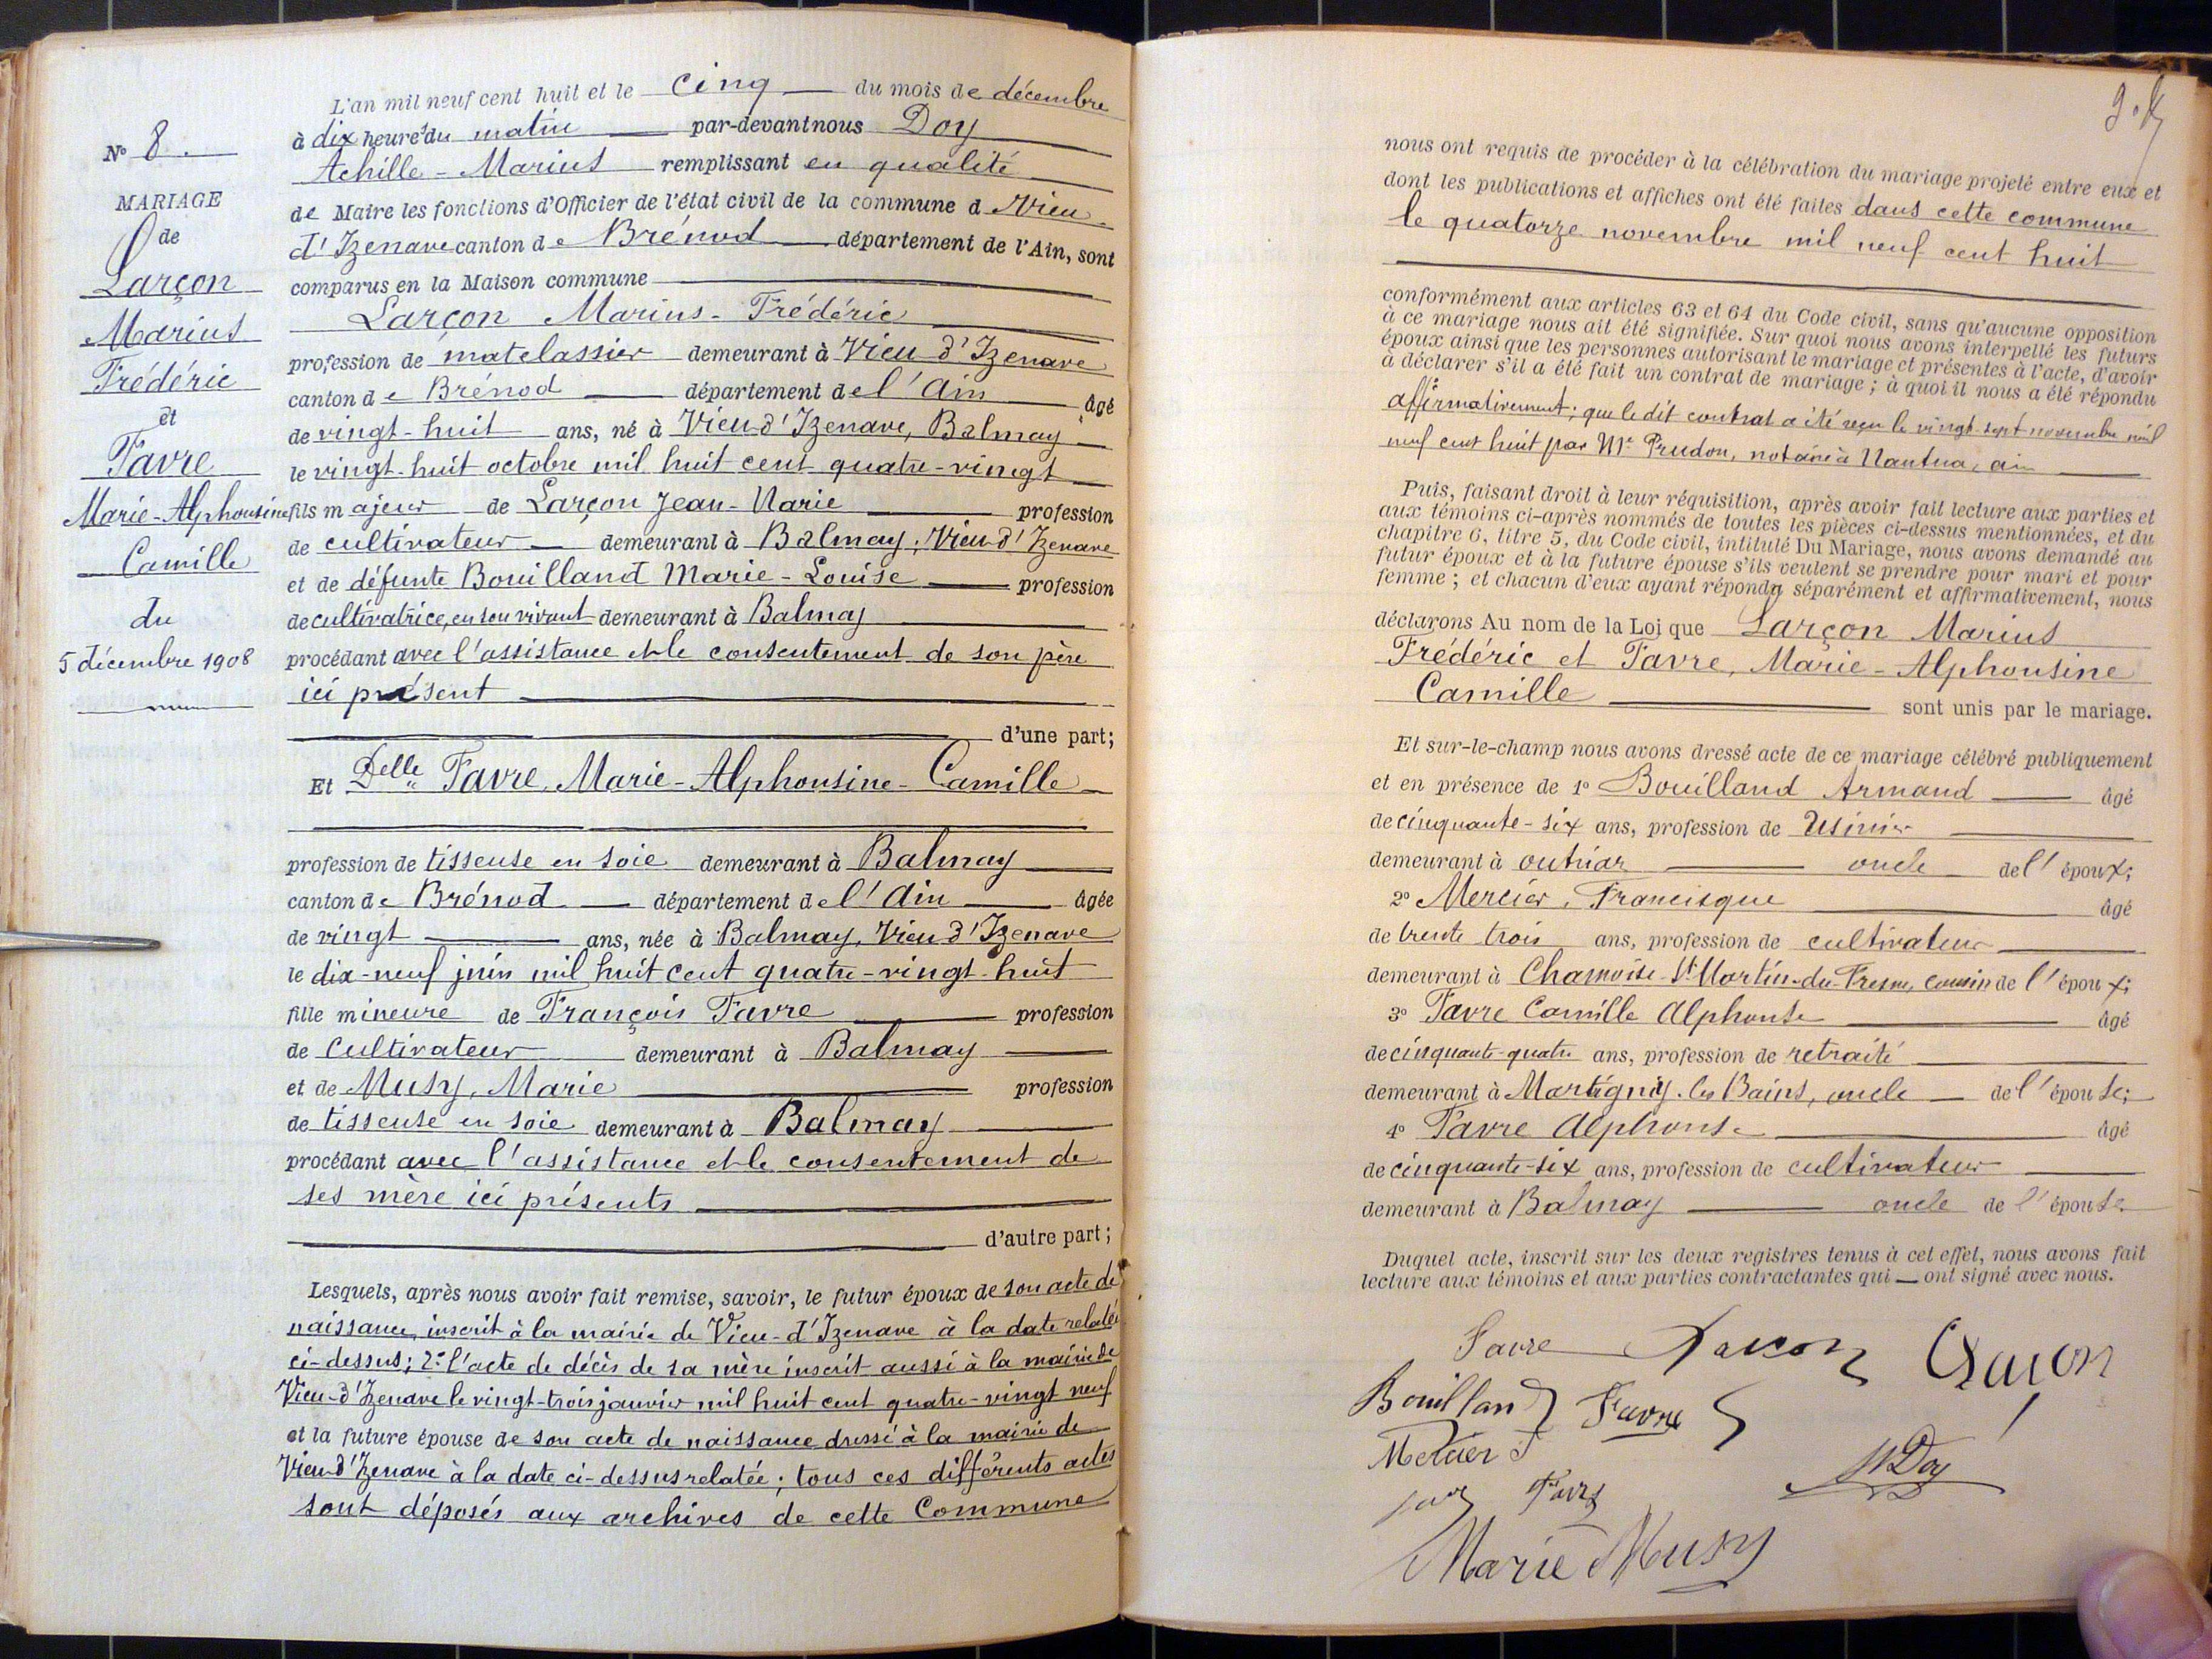 N° 8.
MARIAGE
de
Larçon
Marius
Frédéric
et
Favre
Marie-Alphonsine
Camille
du
5 décembre 1908
L'an mil neuf cent huit et le cinq du mois de décembre
à dix heures du matin par-devant nous Doy
Achille-Marius remplissant en qualité
de Maire les fonctions d'Officier de l'état civil de la commune d Vieu
d'Izenave canton de Brénod département de l'Ain, sont
comparus en la Maison commune
Larçon Marius-Frédéric
profession de matelassier demeurant à Vieu d'Izenave
canton de Brénod département de l'Ain âgé
de vingt-huit ans, né à Vieu-d'Izenave, Balmay
le vingt-huit octobre mil huit cent quatre-vingt
fils majeur de Larçon Jean-Marie profession
de cultivateur demeurant à Balmay, Vieu d'Izenave
et de défunte Bouilland Marie-Louise profession
de cultivatrice, en son vivant demeurant à Balmay
procédant avec l'assistance et le consentement de son père
ici présent
d'une part;
Et Delle Favre, Marie-Alphonsine-Camille
profession de tisseuse en soie demeurant à Balmay
canton de Brénod département de l'Ain âgée
de vingt ans, née à Balmay, Vieu d'Izenave
le dix-neuf juin mil huit cent quatre-vingt-huit
fille mineure de François Favre profession
de cultivateur demeurant à Balmay
et de Musy, Marie profession
de tisseuse en soie demeurant à Balmay
procédant avec l'assistance et le consentement de
ses mère ici présents
d'autre part;
Lesquels, après nous avoir fait remise, savoir, le futur époux de son acte de
naissance, inscrit à la mairie de Vieu-d'Izenave à la date relatée
ci-dessus; 2° l'acte de décès de sa mère inscrit aussi à la mairie de
Vieu-d'Izenave le vingt-trois janvier mil huit cent quatre-vingt neuf
et la future épouse de son acte de naissance dressé à la mairie de
Vieu-d'Izenave à la date ci-dessus relatée; tous ces différents actes
sont déposés aux archives de cette Commune
nous ont requis de procéder à la célébration du mariage projeté entre eux et
dont les publications et affiches ont été faites dans cette commune
le quatorze novembre mil neuf cent huit
conformément aux articles 63 et 64 du Code civil, sans qu'aucune opposition
à ce mariage nous ait été signifiée. Sur quoi nous avons interpellé les futurs
époux ainsi que les personnes autorisant le mariage et présentes à l'acte, d'avoir
à déclarer s'il a été fait un contrat de mariage; à quoi il nous a été répondu
affirmativement; que le dit contrat a été reçu le vingt-sept novembre mil
neuf cent huit par Me Prudon, notaire à Nantua, ain
Puis, faisant droit à leur réquisition, après avoir fait lecture aux parties et
aux témoins ci-après nommés de toutes les pièces ci-dessus mentionnées, et du
chapitre 6, titre 5, du Code civil, intitulé Du Mariage, nous avons demandé au
futur époux et à la future épouse s'ils veulent se prendre pour mari et pour
femme; et chacun d'eux ayant répondu séparément et affirmativement, nous
déclarons Au nom de la Loi que Larçon Marius
Frédéric et Favre, Marie-Alphonsine
Camille sont unis par le mariage.
Et sur-le-champ nous avons dressé acte de ce mariage célébré publiquement
et en présence de 1° Bouilland Armand âgé
de cinquante-six ans, profession de Usinier
demeurant à outriaz oncle de l'époux;
2° Mercier, Francisque âgé
de trente trois ans, profession de cultivateur
demeurant à Chamoise-St Martin-du-Fresne, cousin de l'époux;
3° Favre Camille Alphonse âgé
de cinquante-quatre ans, profession de retraité
demeurant à Martigny-les Bains, oncle de l'épouse;
4° Favre Alphonse âgé
de cinquante-six ans, profession de cultivateur
demeurant à Balmay oncle de l'épouse
Duquel acte, inscrit sur les deux registres tenus à cet effet, nous avons fait
lecture aux témoins et aux parties contractantes qui ont signé avec nous.
Favre Larçon Larçon
Bouilland Favre
Mercier F
Favre
Doy
Marie Musy